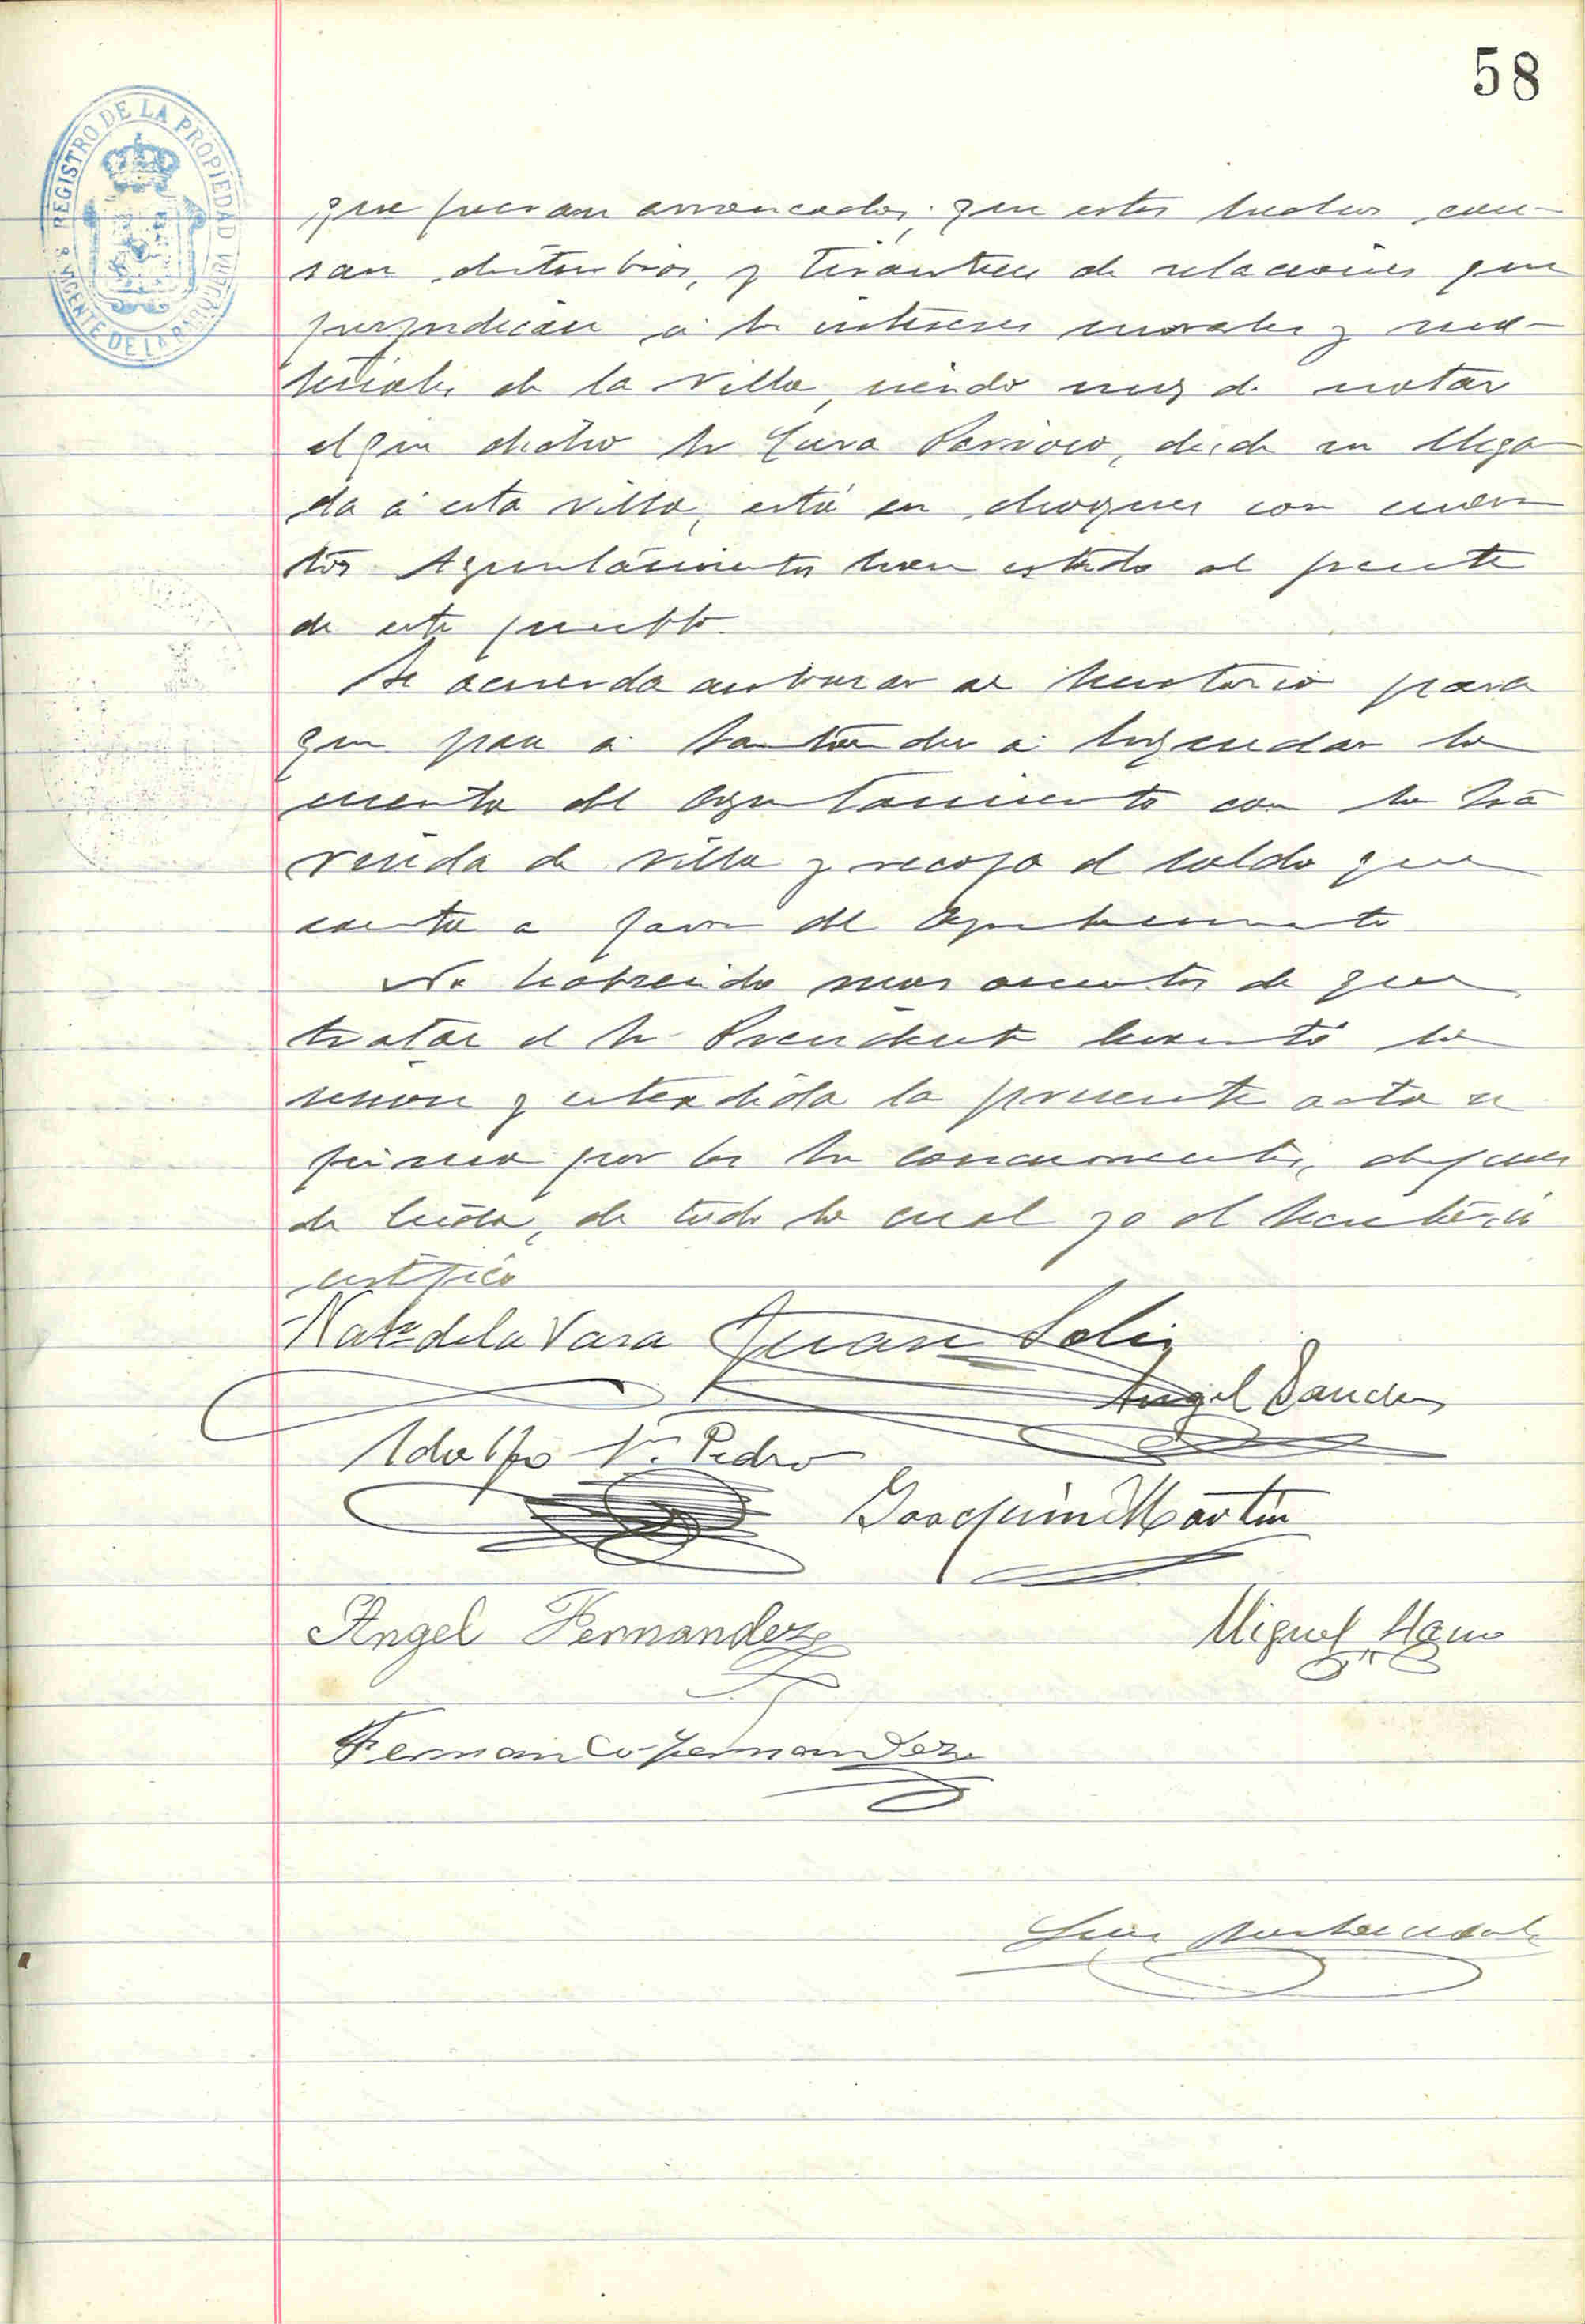 58
REGISTRO DE LA PROPIEDAD
S. VICENTE DE LA BARQUERA
que fueran arrancados; que estos hechos cau-
san disturbios, y tirantece de relaciones que
perjudican á los intereses morales y ma-
teriales de la Villa, siendo muy de notar
el que dicho Sr Cura Parroco, desde su llega
da á esta villa, está en choques con cuan
tos Ayuntamientos han estado al frente
de este pueblo.
Se acuerda autorizar al Secretario para
que pase a Santander a liquidar la
cuenta del Ayuntamiento con la
de villa y recoja el saldo que
a favor del Ayuntamiento
No habiendo mas asuntos de que
tratar el Sr Presidente levantó la
sesion y extendida la presente acta se
firma por los Sres concurrentes, despues
de leida, de todo lo cual yo el Secretario
certifico
de la Vara Juan Solis
Angel Sanchez
Adolfo V. Pedro
Joaquin Martin
Angel Fernandez
Miguel
Fernando Fernandez
Luis